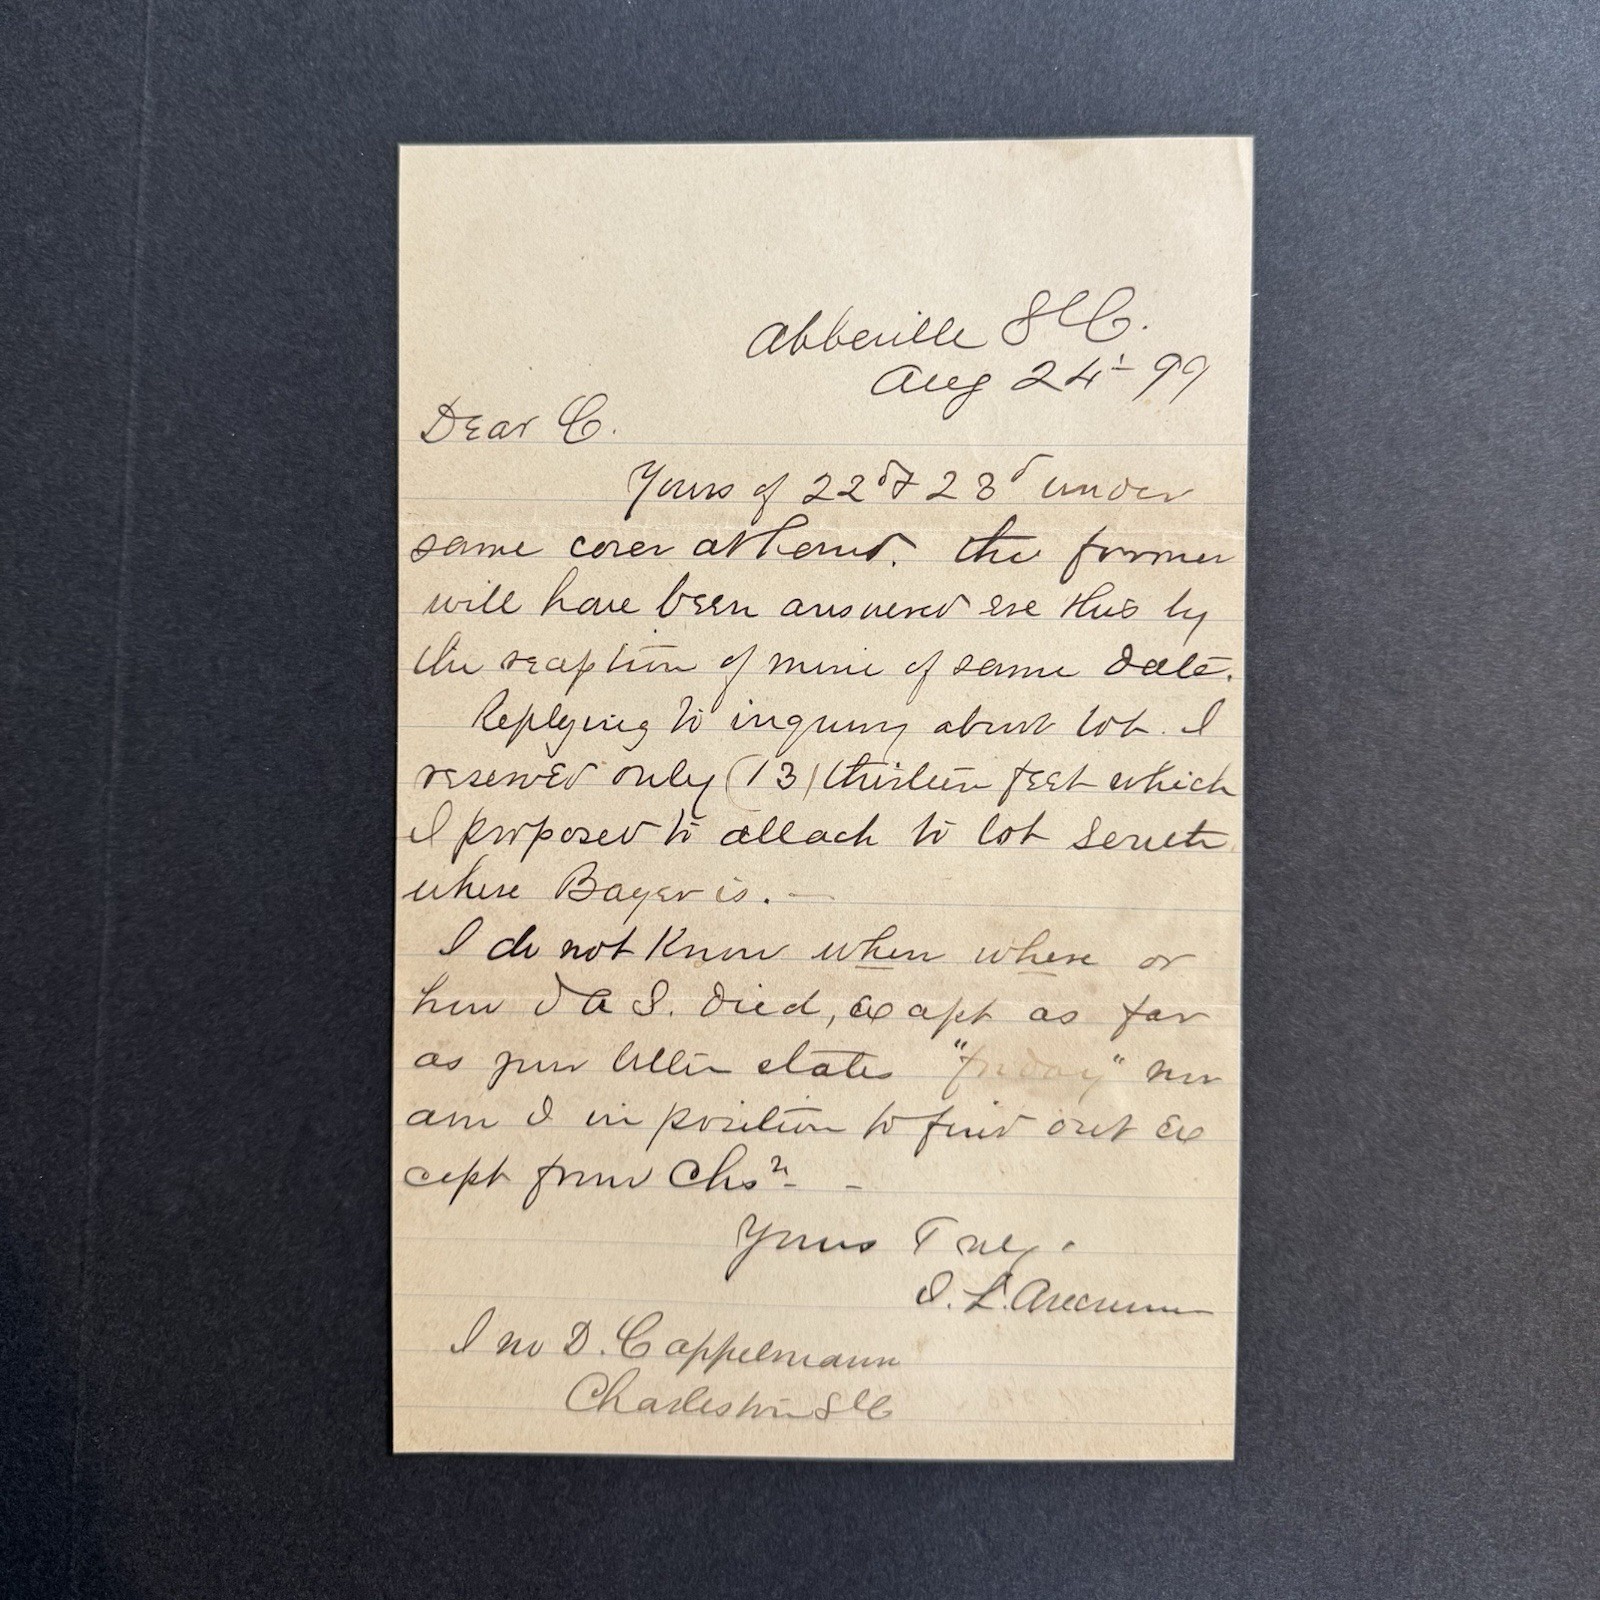 Abbeville S C.
Aug 24th 99
Dear C.
Yours of 22d & 23d under
same cover at hand. The former
will have been answered ere this by
the reception of mine of same date.
Replying to inquiry about lot. I
reserved only (13) thirteen feet which
I proposed to attach to lot South
where Bayer is. —
I do not know when where or
how J A S. died, except as far
as your letter states "Friday" nor
am I in position to find out ex
cept from Chsn - -
Yours Truly.
J. L.
Jno D. Cappelmann
Charleston S C